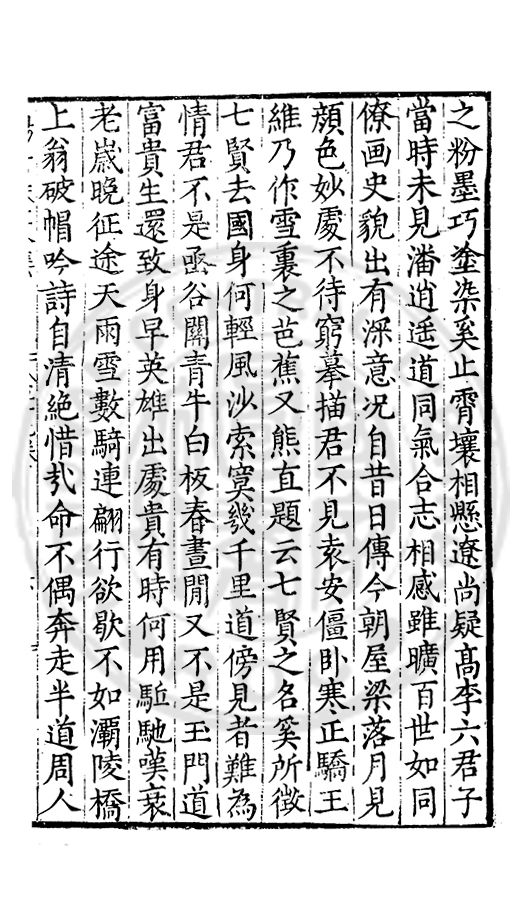 之粉墨巧塗染奚止霄壤相懸遼尚疑髙李六君子
當時未見潘逍遥道同氣合志相感雖曠百世如同
僚画史貌出有深意况自昔日傳今朝屋梁落月見
顔色妙處不待窮摹描君不見袁安僵卧寒正驕王
維乃作雪裏之芭蕉又熊直題云七賢之名奚所徴
七賢去國身何輕風沙索寞幾千里道傍見者難為
情君不是函谷關青牛白板春晝閒又不是玉門道
富貴生還致身早英雄出處貴有時何用駈馳嘆衰
老嵗晩征途天雨雪數騎連翩行欲歇不如灞陵橋
上翁破帽吟詩自清絶惜㢤命不偶奔走半道周人